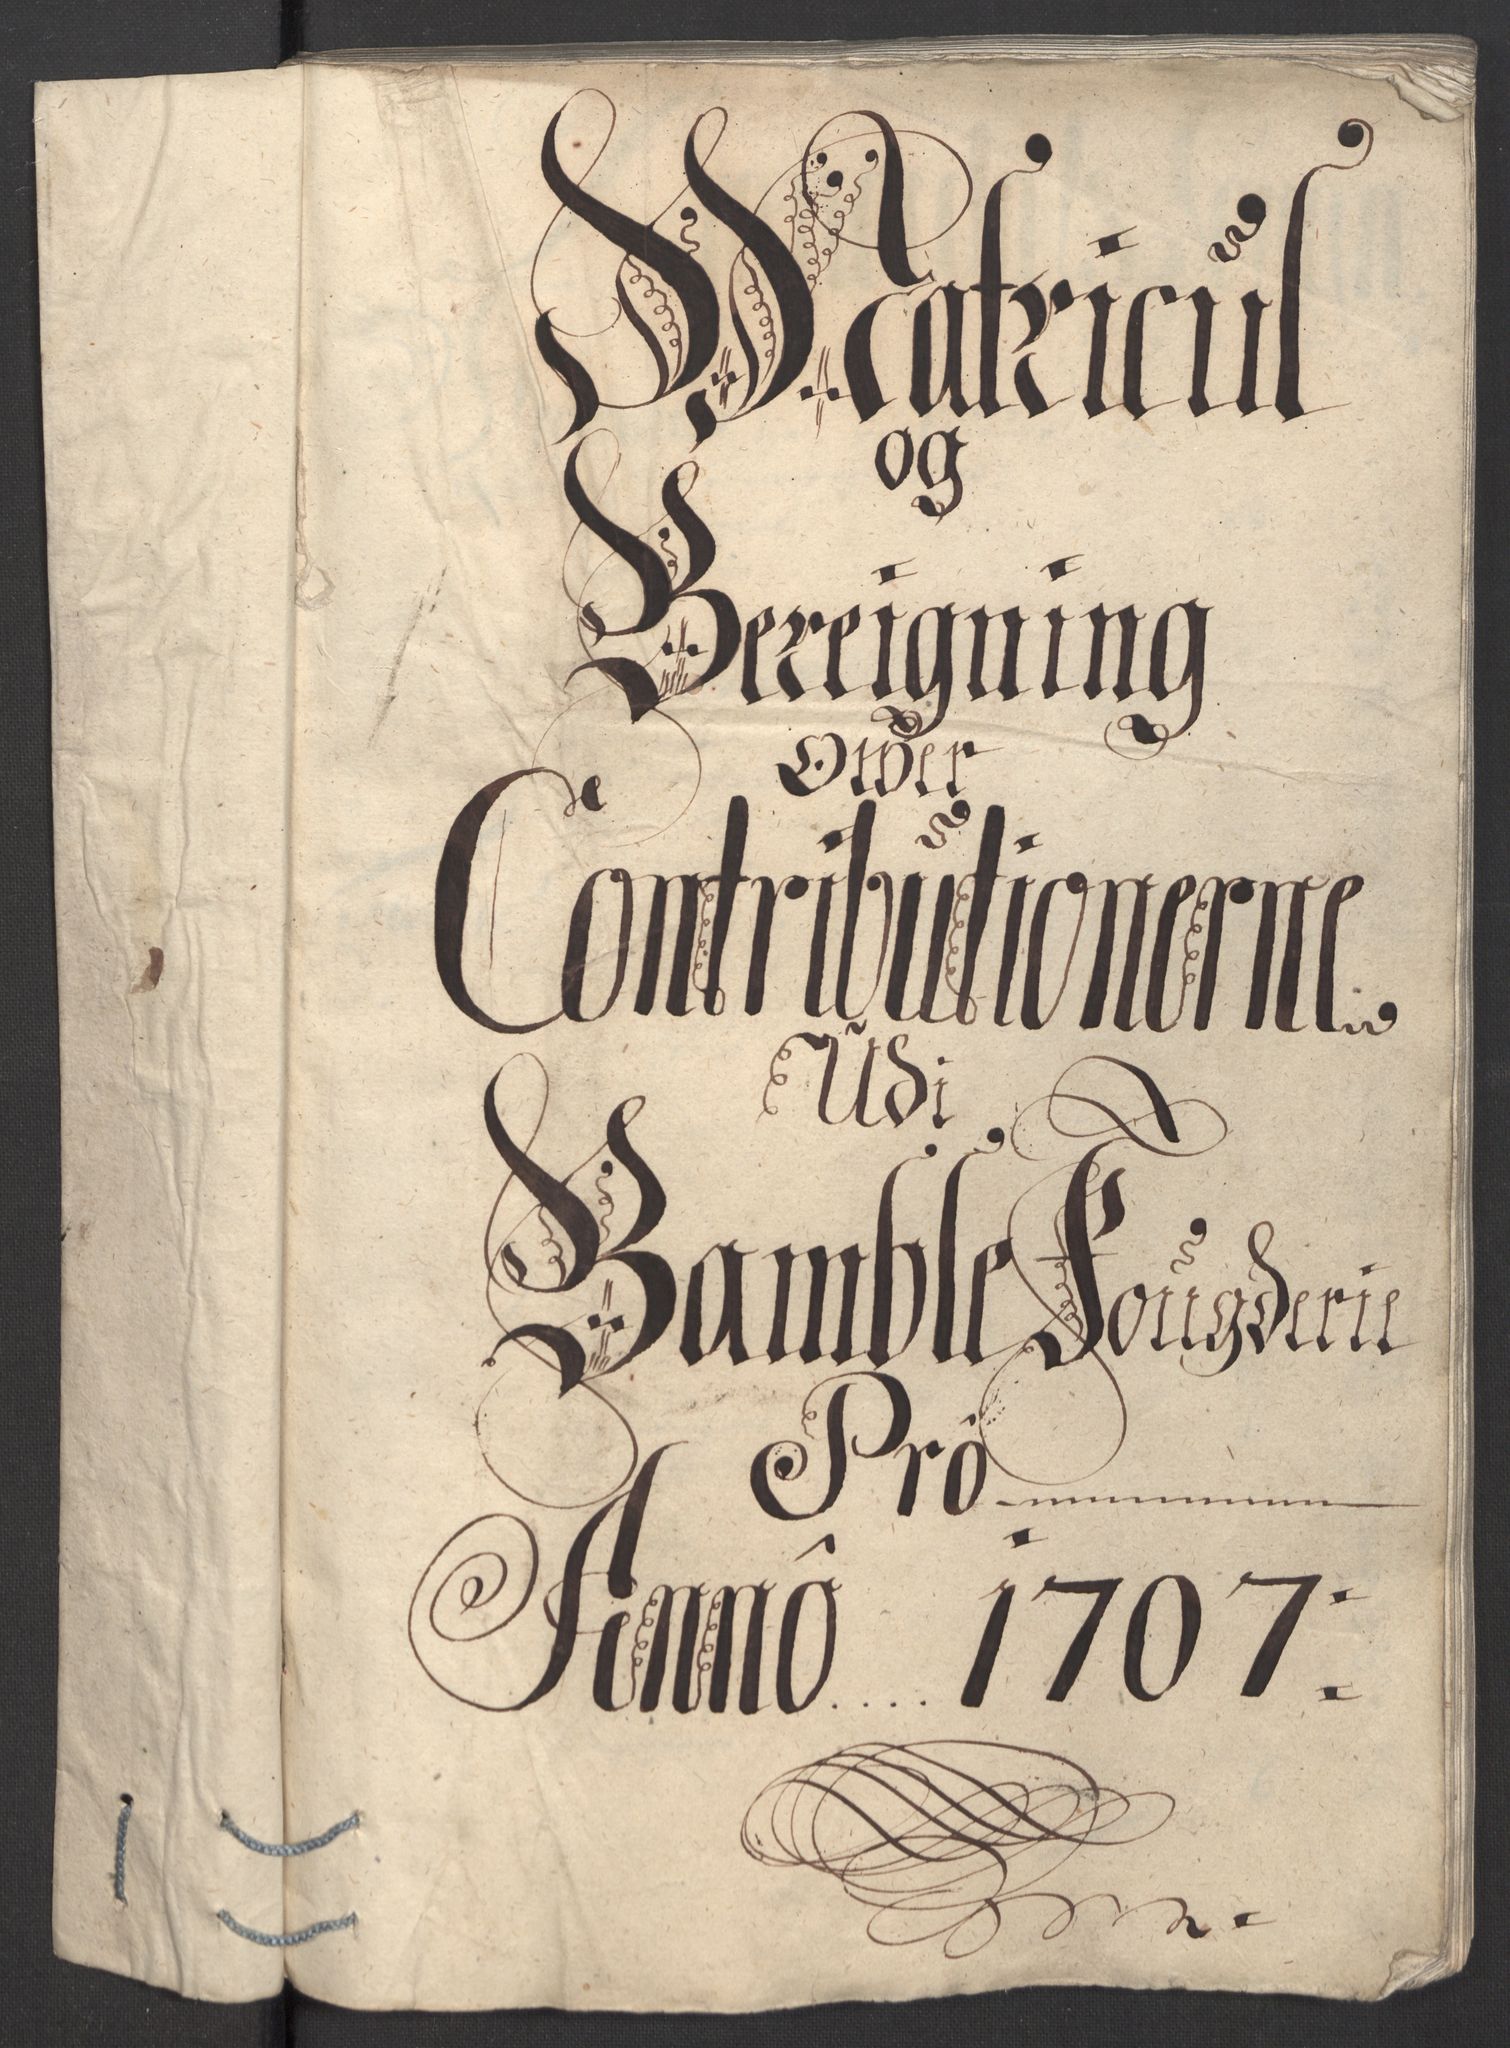 Matricul
og
Bereigning
Ower
Contributionerne
Udi
Bamble Fougderie
Pro
Anno .... 1707: